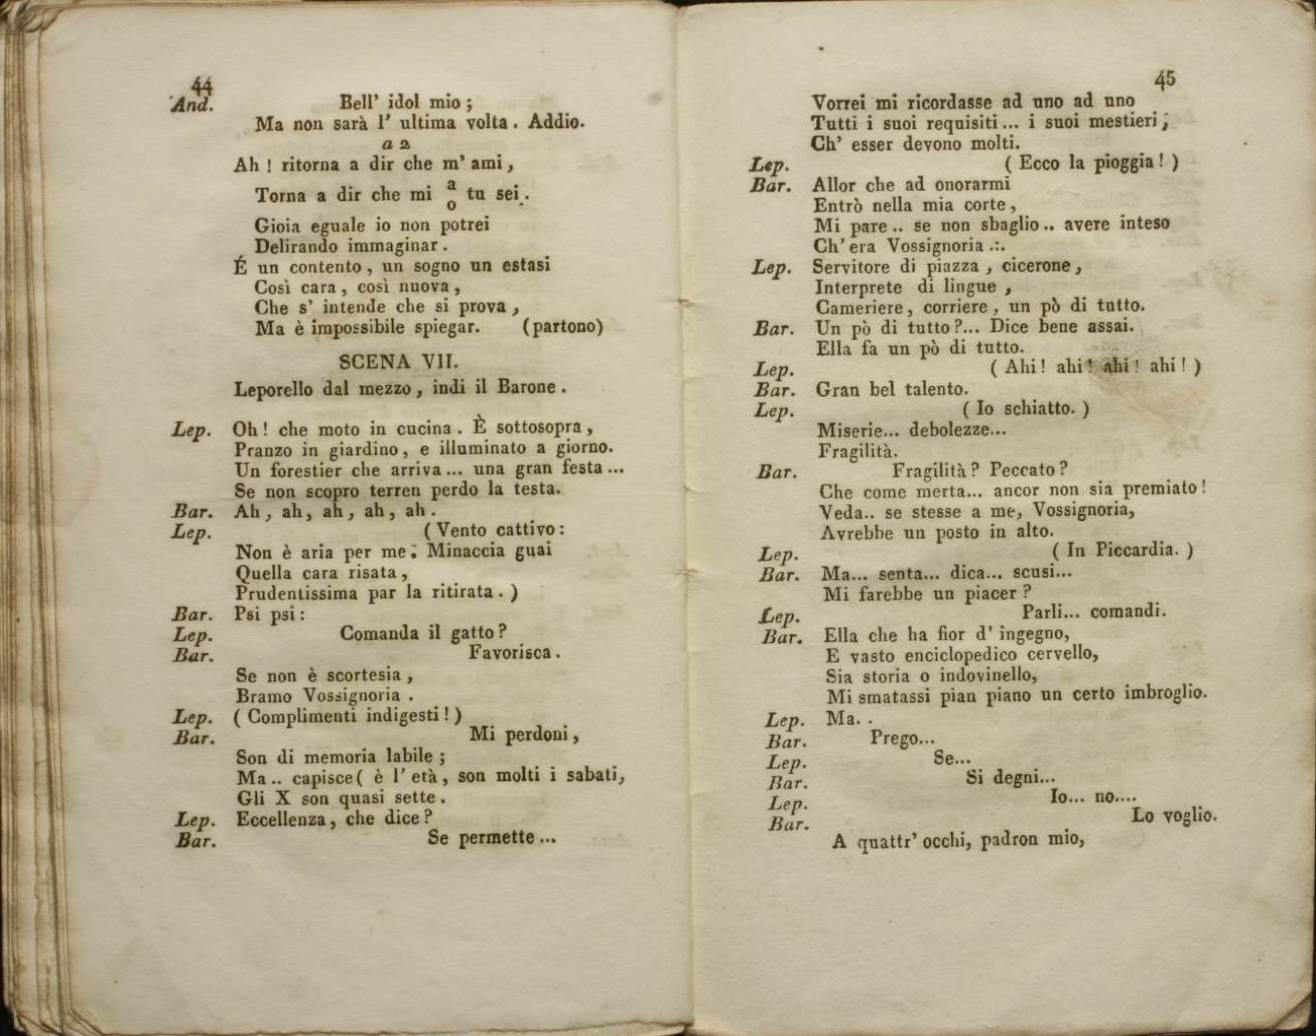 44
And. Bell' idol mio ;
Ma non sarà l' ultima volta. Addio.
a 2
Ah ! ritorna a dir che m' ami ,
Torna a dir che mi a/o tu sei .
Gioia eguale io non potrei
Delirando immaginar .
É un contento , un sogno un estasi
Così cara , così nuova ,
Che s' intende che si prova ,
Ma è impossibile spiegar. (partono)
SCENA VII.
Leporello dal mezzo , indi il Barone .
Lep. Oh ! che moto in cucina . È sottosopra ,
Pranzo in giardino , e illuminato a giorno.
Un forestier che arriva ... una gran festa ...
Se non scopro terren perdo la testa.
Bar. Ah, ah, ah, ah, ah .
Lep. ( Vento cattivo :
Non è aria per me. Minaccia guai
Quella cara risata ,
Prudentissima par la ritirata . )
Bar. Psi psi :
Lep. Comanda il gatto ?
Bar. Favorisca .
Se non è scortesia ,
Bramo Vossignoria .
Lep. ( Complimenti indigesti ! )
Bar. Mi perdoni ,
Son di memoria labile ;
Ma .. capisce ( è l' età , son molti i sabati,
Gli X son quasi sette .
Lep. Eccellenza , che dice ?
Bar. Se permette ...
45
Vorrei mi ricordasse ad uno ad uno
Tutti i suoi requisiti ... i suoi mestieri ;
Ch' esser devono molti.
Lep. ( Ecco la pioggia ! )
Bar. Allor che ad onorarmi
Entrò nella mia corte ,
Mi pare .. se non sbaglio .. avere inteso
Ch' era Vossignoria .:.
Lep. Servitore di piazza , cicerone ,
Interprete di lingue ,
Cameriere , corriere , un pò di tutto.
Bar. Un pò di tutto ?... Dice bene assai.
Ella fa un pò di tutto.
Lep. ( Ahi ! ahi ! ahi ! ahi ! )
Bar. Gran bel talento.
Lep. ( Io schiatto. )
Miserie... debolezze...
Fragilità.
Bar. Fragilità ? Peccato ?
Che come merta... ancor non sia premiato !
Veda.. se stesse a me, Vossignoria,
Avrebbe un posto in alto.
Lep. ( In Piccardia. )
Bar. Ma... senta... dica... scusi...
Mi farebbe un piacer ?
Lep. Parli... comandi.
Bar. Ella che ha fior d' ingegno,
E vasto enciclopedico cervello,
Sia storia o indovinello,
Mi smatassi pian piano un certo imbroglio.
Lep. Ma. .
Bar. Prego...
Lep. Se...
Bar. Si degni...
Lep. Io... no....
Bar. Lo voglio.
A quattr' occhi, padron mio,